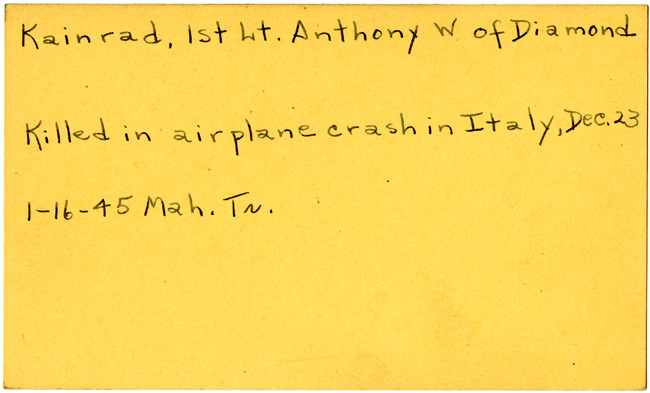 Kainrad, 1st Lt. Anthony W of Diamond
Killed in airplane crash in Italy, Dec. 23
1-16-45 Mah. Tr.